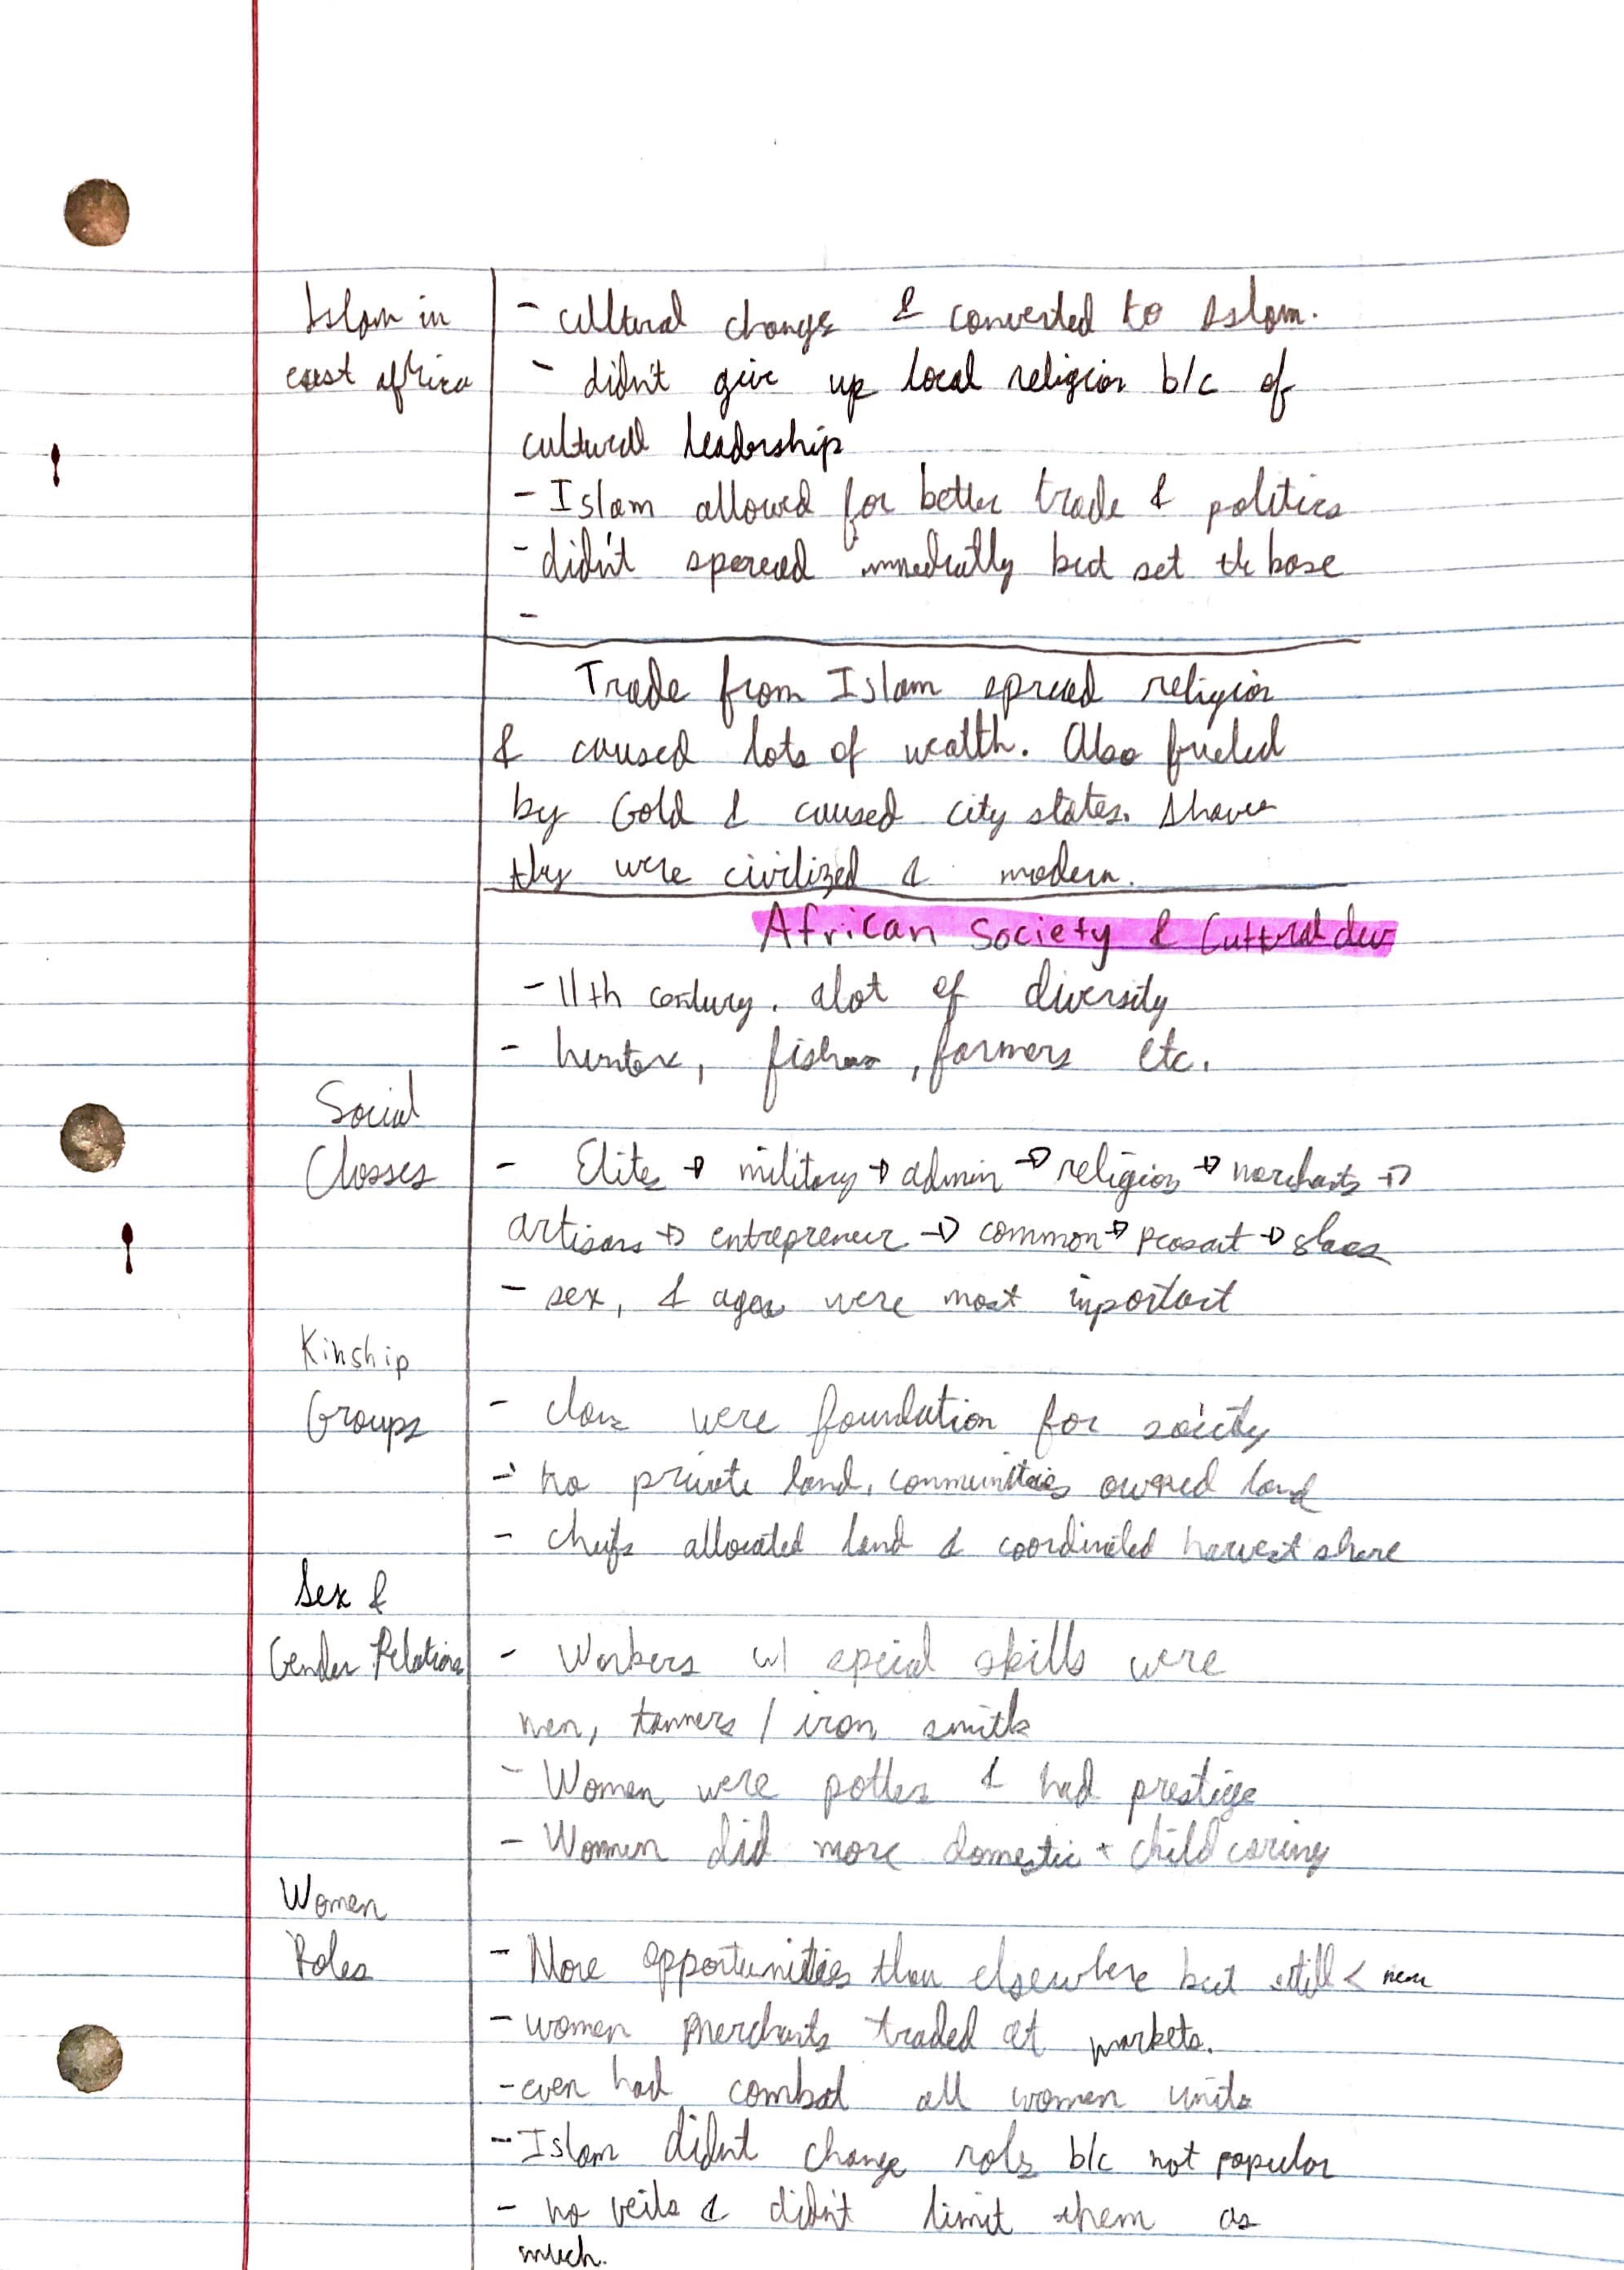 Islam in
east africa
- cultural change & converted to Islam.
- didn't give up local religion b/c of
cultural leadership
- Islam allowed for better trade & politics
- didn't spread immediatly but set the base
-
Trade from Islam spread religion
& caused lots of wealth. Also fueled
by Gold & caused city states. Shows
they were civilized & modern.
African Society & Cultural dev
- 11th century. alot of diversity
- hunter, fisher, farmers etc.
Social
Classes
- Elites → military → admin → religion → merchants →
artisans → entrepreneur → common → peasant → slaves
- sex, & ages were most important
Kinship
Groups
- clans were foundation for society
- no private land, communities owned land
- cheifs allocated land & coordinated harvest share
Sex &
Gender Relations
- Workers w/ special skills were
men, tanners / iron smith
- Women were potters & had prestige
- Women did more domestic + child caring
Women
Roles
- More opportunities than elsewhere but still < men
- women merchants traded at markets.
- even had combat all women units
- Islam didnt change roles b/c not popular
- no veils & didn't limit them as
much.